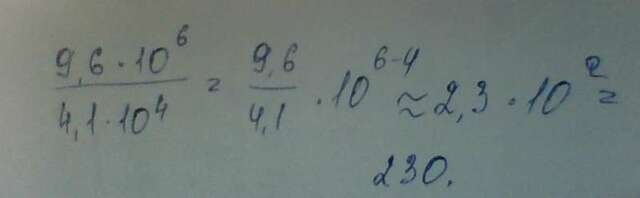 9,6 · 10^6 / 4,1 · 10^4 = 9,6 / 4,1 · 10^(6-4) ≈ 2,3 · 10^2 =
230.